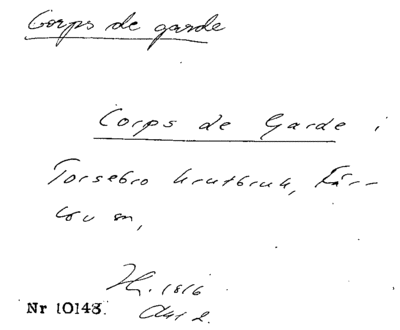 Corps de garde
Corps de Garde i
Torsebro krutbruk, Fär-
löv sn,
Hi. 1816
Akt 2.
Nr 10148.